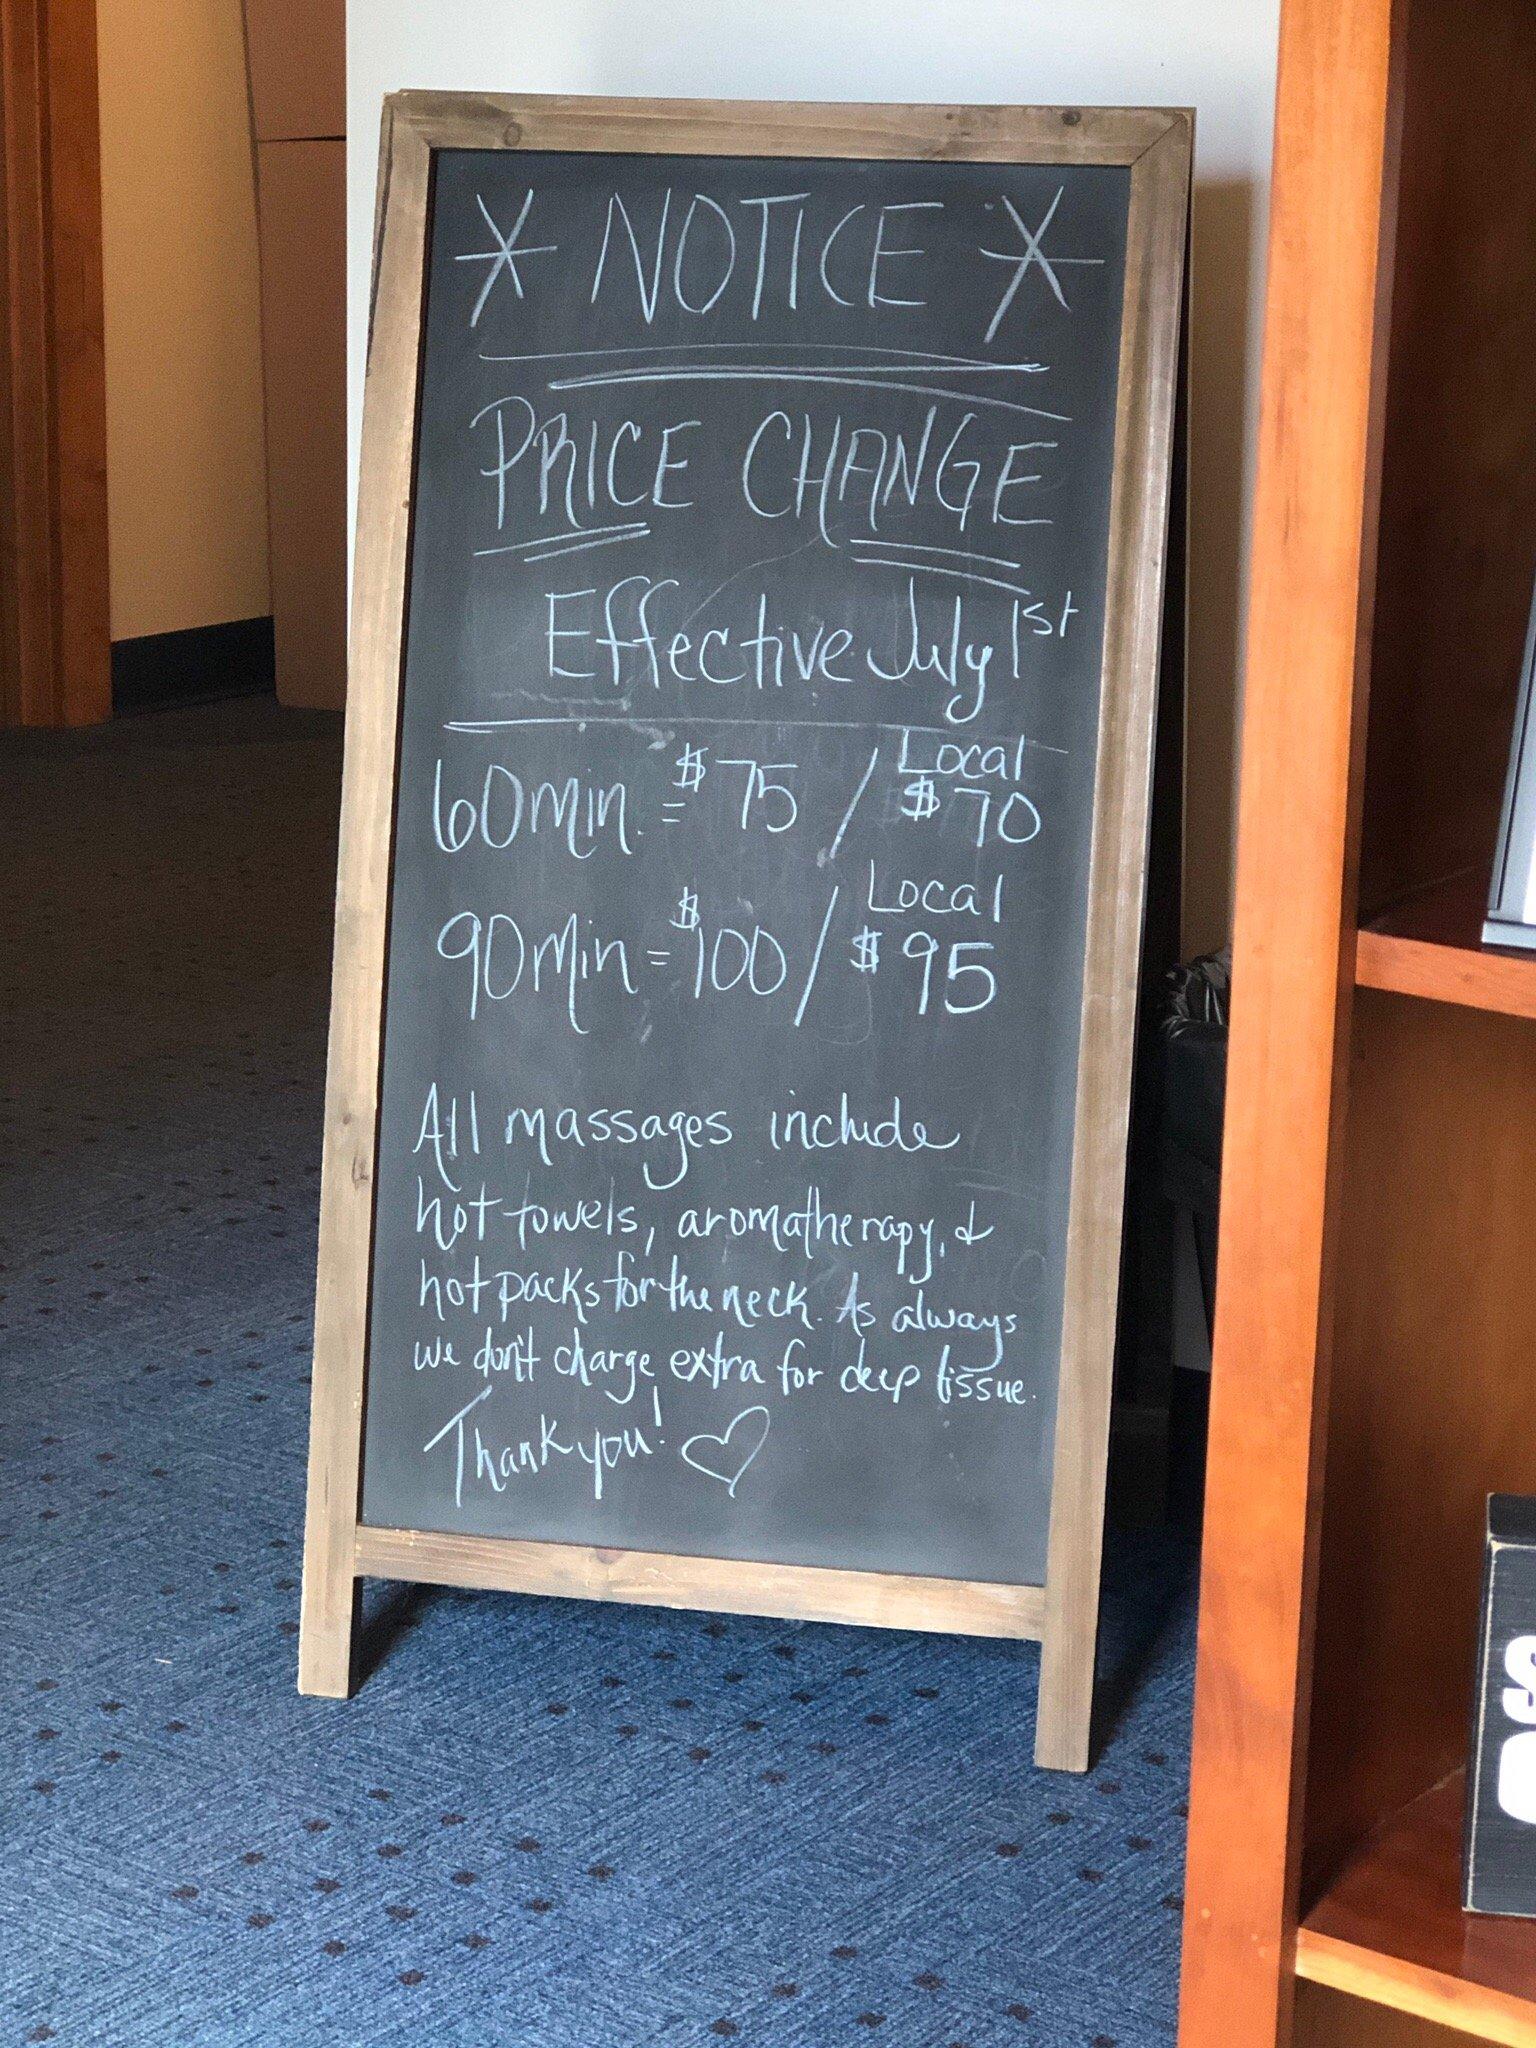 * NOTICE *
PRICE CHANGE
Effective July 1st
60min. = $75 / Local $70
90min = $100 / Local $95
All massages include
hot towels, aromatherapy, &
hot packs for the neck. As always
we don't charge extra for deep tissue.
Thank you! ♡